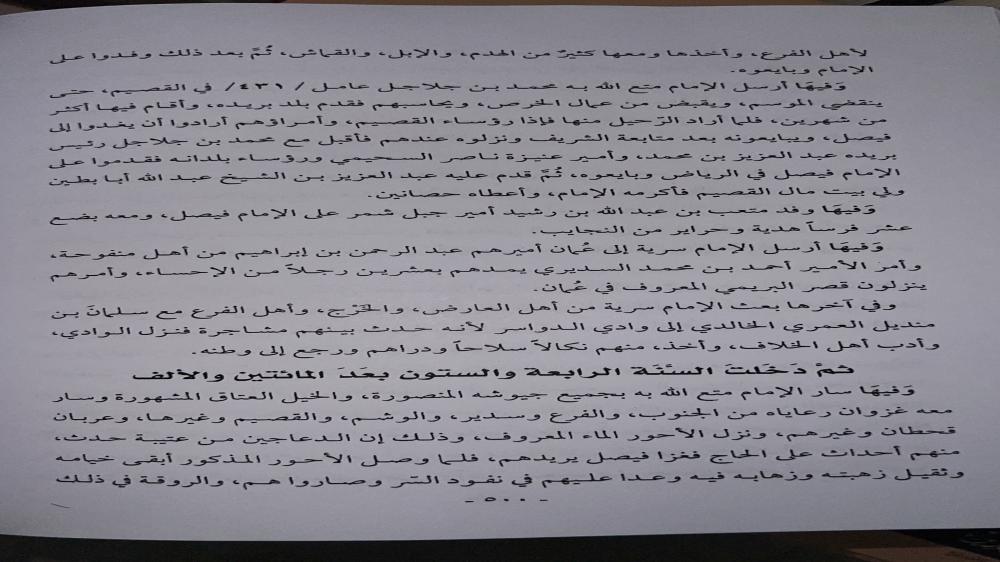 لأهل الفرع، وأخذها ومعها كثيرٌ من الخدم، والإبل، والقماش، ثُمَّ بعد ذلك وفدوا على
الإمام وبايعوه.
وَفيهَا أرسل الإمام متع الله به محمد بن جلاجل عامل/ ٤٣١/ في القصيم، حتى
ينقضي الموسم، ويقبض من عمال الخرص، ويحاسبهم فقدم بلد بريده، وأقام فيها أكثر
من شهرين، فلما أراد الرّحيل منها فإذا رؤساء القصيم، وأمراؤهم أرادوا أن يفدوا إلى
فيصل، ويبايعونه بعد متابعة الشريف ونزلوه عندهم فأقبل مع محمد بن جلاجل رئيس
بريده عبد العزيز بن محمد، وأمير عنيزة ناصر السحيمي ورؤساء بلدانه فقدموا على
الإمام فيصل في الرياض وبايعوه، ثُمَّ قدم عليه عبد العزيز بن الشيخ عبد الله أبا بطين
ولي بيت مال القصيم فأكرمه الإمام، وأعطاه حصانين.
وَفيهَا وفد متعب بن عبد الله بن رشيد أمير جبل شمر على الإمام فيصل، ومعه بضع
عشر فرساً هدية وحراير من النجايب.
وَفيهَا أرسل الإمام سرية إلى عُمان أميرهم عبد الرحمن بن إبراهيم من أهل منفوحة،
وأمر الأمير أحمد بن محمد السديري يمدهم بعشرين رجلاً من الإحساء، وأمرهم
ينزلون قصر البريمي المعروف في عُمان.
وفي آخرها بعث الإمام سرية من أهل العارض، والخَرْج، وأهل الفرع مع سلمانَ بن
منديل العمري الخالدي إلى وادي الدواسر لأنه حدث بينهم مشاجرة فنزل الوادي،
وأدب أهل الخلاف، وأخذ، منهم نكالاً سلاحاً ودراهم ورجع إلى وطنه.
ثمْ دَخَلتَ السنَّنَة الرابعة والستون بعَدَ المائتين والألف
وَفيهَا سار الإمام متع الله به بجميع جيوشه المنصورة، والخيل العتاق المشهورة وسار
معه غزوان رعاياه من الجنوب، والفرع وسدير، والوشم، والقصيم وغيرها، وعربان
قحطان وغيرهم، ونزل الأحور الماء المعروف، وذلك إن الدعاجين من عتيبة حدث،
منهم أحداث على الحاج فغزا فيصل يريدهم، فلما وصل الأحور المذكور أبقى خيامه
وثقيل زهبته وزهابه فيه وعدا عليهم في نفود السر وصاروا هم، والروقة في ذلك
- ٥٠٠ -